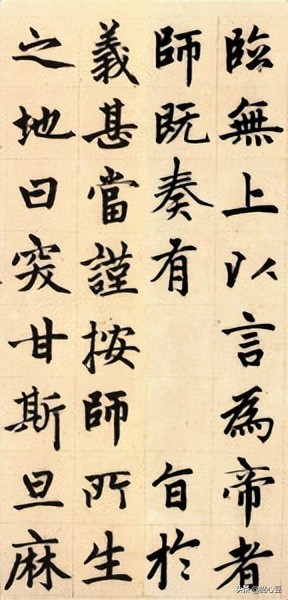 臨無上以言為帝者
師既奏有 旨於
義甚當謹按師所生
之地曰突甘斯旦麻
头条